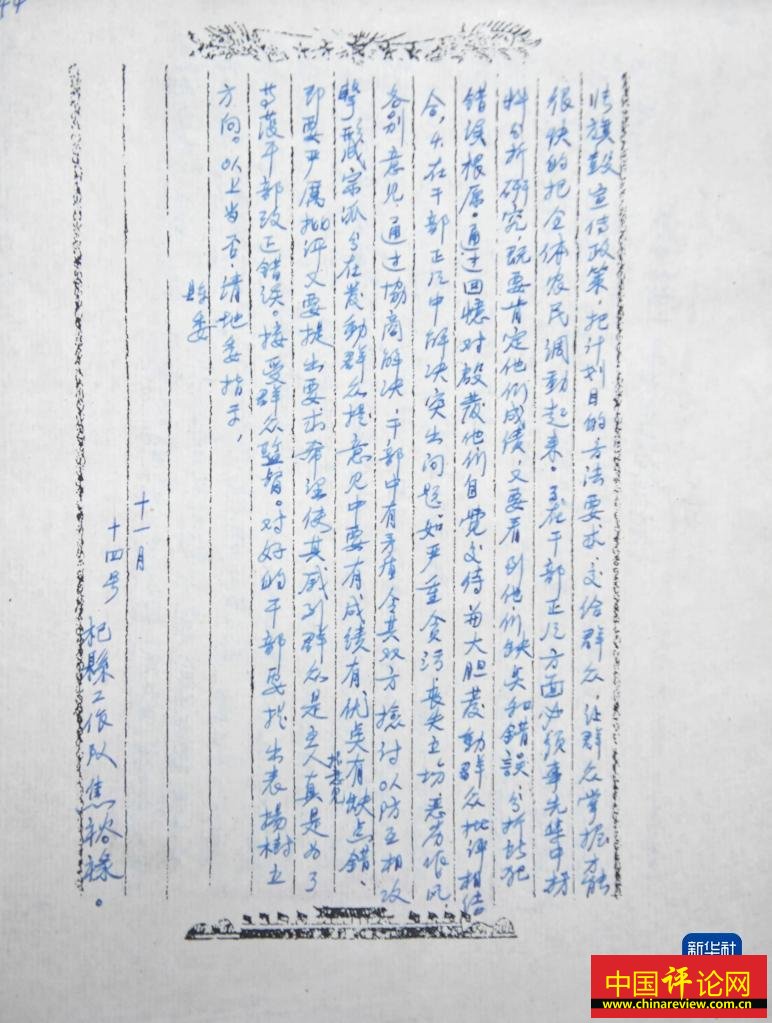 44
张旗鼓宣传政策,把计划目的方法要求,交给群众,让群众掌握,才能
很快的把全体农民调动起来。3在干部正风方面,必须事先集中材
料,分析研究,既要肯定他们成绩,又要看到他们缺点和錯誤,分析其犯
錯误根原。通过回憶对啟發他们自覚交待,与大胆發動群众批评相结
合,4.在干部正风中解决突出问题,如严重贪污,丧失立场,恶劣作风,
各别意见,通过協商解决,干部中有矛盾令其双方檢讨,以防互相攻
擊形成宗派,5在發動群众提意见中要有成績有优点有缺点錯,
即要严厲批评又要提出要求希望,使其感到群众提意见是主人真是为了
爱護干部改正错误。接受群众监督。对好的干部要提出表揚樹立
方向。以上当否,请地委指示,
县委
十一月
十四号
杞縣工作队焦裕祿。
新华社
中国评论网
www.chinareview.com.cn